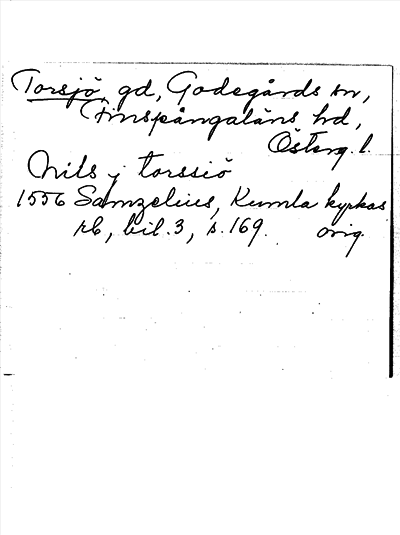 Torsjö, gd, Godegårds sn,
Finspångaläns hd,
Österg. l.
Nils j torssiö
1556 Samzelius, Kumla kyrkas
rb, bil. 3, s. 169. orig.